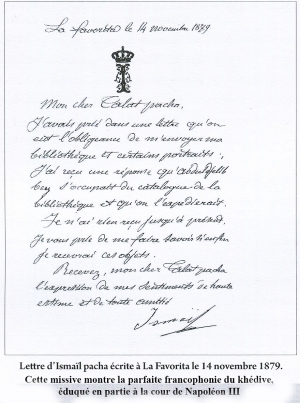 La Favorita le 14 novembre 1879
Mon cher Talat pacha,
J'avais prié dans une lettre qu'on
eût l'obligeance de m'envoyer ma
bibliothèque et certains portraits,
J'ai reçu une réponse qu'
bey s'occupait du catalogue de la
bibliothèque et qu'on l'expédierait.
Je n'ai rien reçu jusqu'à présent.
Je vous prie de me faire savoir si enfin
je recevrai ces objets.
Recevez, mon cher Talat pacha
l'expression de mes sentiments de haute
estime et de toute amitié
Ismaïl
Lettre d'Ismaïl pacha écrite à La Favorita le 14 novembre 1879.
Cette missive montre la parfaite francophonie du khédive,
éduqué en partie à la cour de Napoléon III